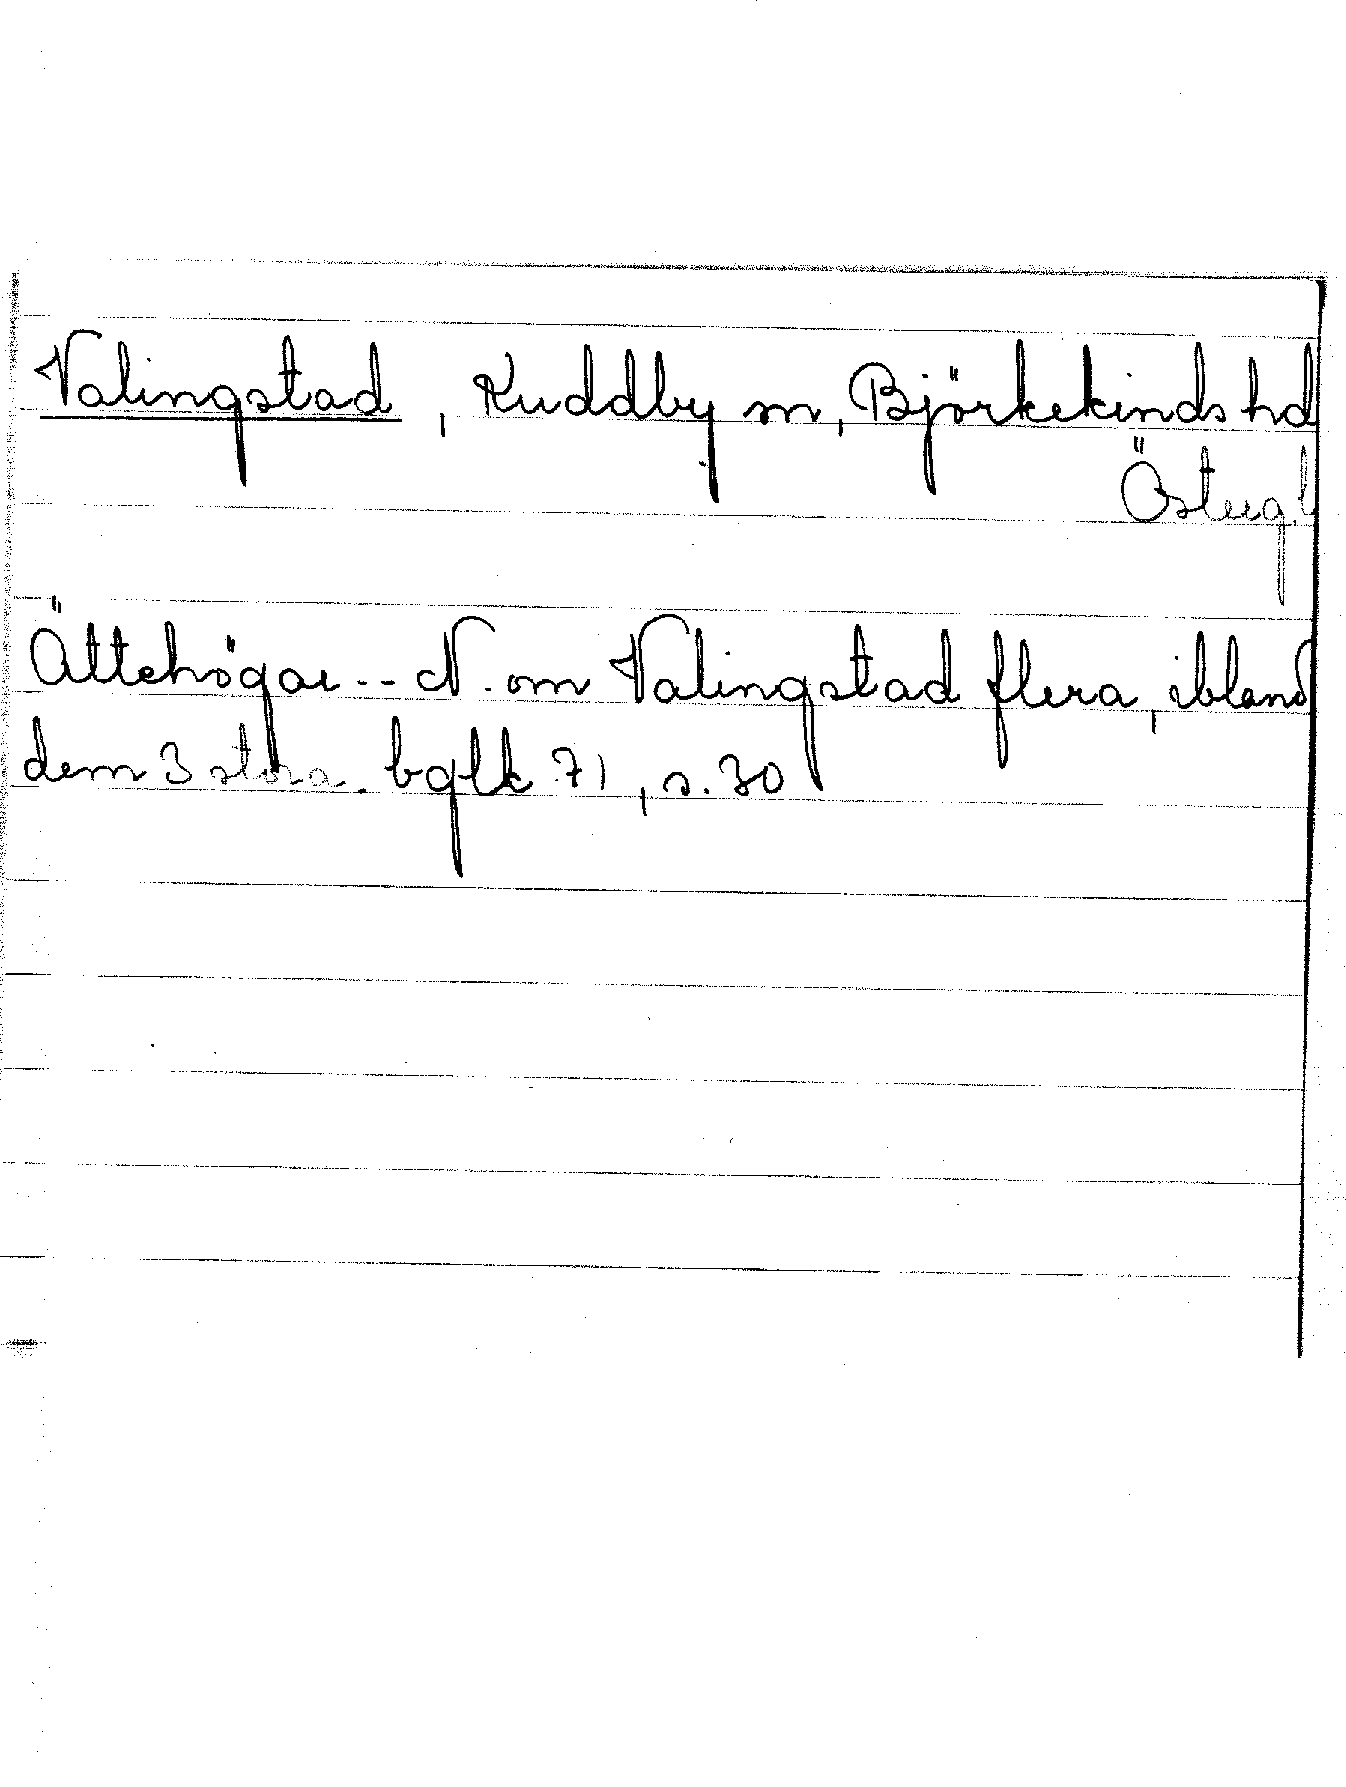 Valingstad, Kuddby sn, Björkekinds hd
Östergl
Ättehögar -- N. om Valingstad flera, ibland
dem 3 stora. bglk 71, s. 30